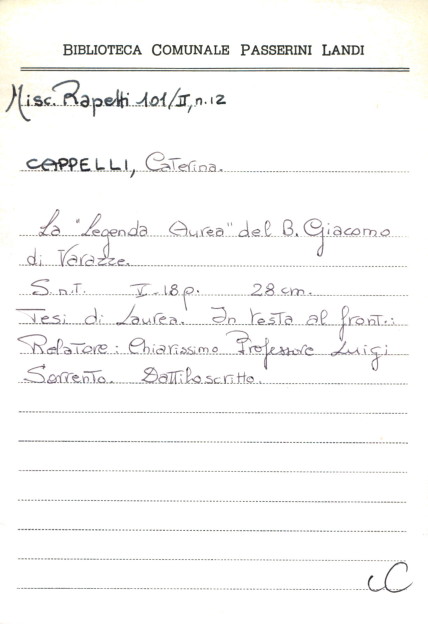 BIBLIOTECA COMUNALE PASSERINI LANDI
Misc. Rapetti 101/II, n.12
CAPPELLI, Caterina.
La "Legenda Aurea" del B. Giacomo
di Varazze.
S.n.t. V-18p. 28 cm.
Tesi di Laurea. In testa al front.:
Relatore: Chiarissimo Professore Luigi
Sorrento. Dattiloscritto.
C